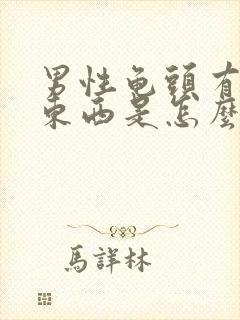 男性龟頭有
東西是怎麼
馬詳林